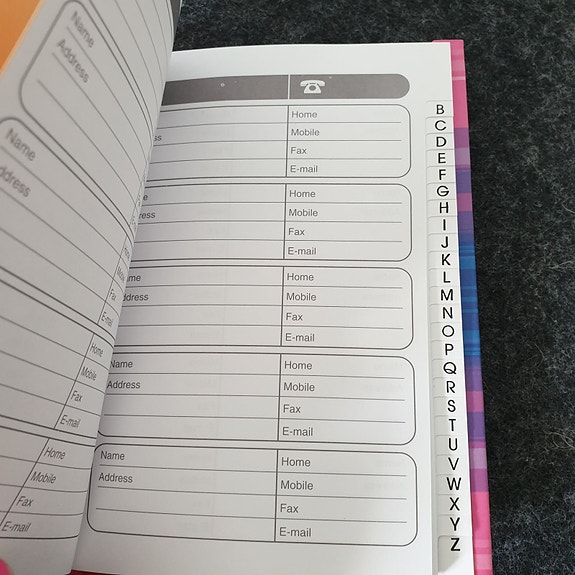 Name
Address
Name
ddress
Mobile
Fax
E-mail
Home
Mobile
Fax
E-mail
Home
Mobile
Fax
E-mail
Home
ss Mobile
Fax
E-mail
e Home
ress Mobile
Fax
E-mail
me Home
ddress Mobile
Fax
E-mail
Name Home
Address Mobile
Fax
E-mail
Name Home
Address Mobile
Fax
E-mail
B
C
D
E
F
G
H
I
J
K
L
M
N
O
P
Q
R
S
T
U
V
W
X
Y
Z